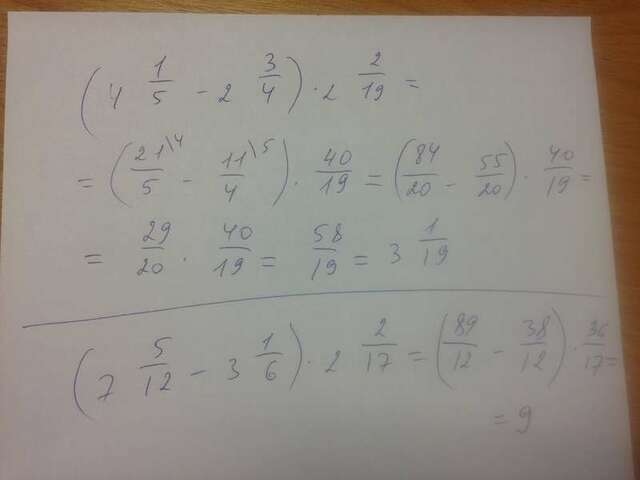 (4 1/5 - 2 3/4) · 2 2/19 =
= (21\4/5 - 11\5/4) · 40/19 = (84/20 - 55/20) · 40/19 =
= 29/20 · 40/19 = 58/19 = 3 1/19
(7 5/12 - 3 1/6) · 2 2/17 = (89/12 - 38/12) · 36/17 =
= 9